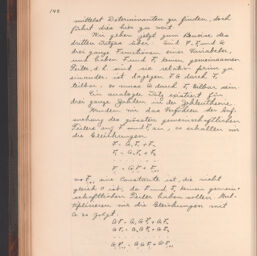 142
mittelst Determinanten zu finden, doch
führt dies hier zu weit.
Wir gehen jetzt zum Beweise des
dritten Satzes über. Sind F, F₁ und G
drei ganze Funktionen einer Variabeln,
und haben F und F₁ keinen gemeinsamen
Teiler, d. h. sind sie relativ prim zu
einander, ist dagegen F G durch F₁
teilbar, so muss G durch F₁ teilbar sein.
Ein analoger Satz existiert für
drei ganze Zahlen in der Zahlentheorie.
Wenden wir das Verfahren der Auf-
suchung des grössten gemeinschaftlichen
Teilers auf F und F₁ an, so erhalten wir
die Gleichungen
F = Q₁F₁ + F₂
F₁ = Q₂F₂ + F₃
wo eine Constante ist, die nicht
gleich 0 ist, da F und F₁ keinen gemein-
schaftlichen Teiler haben sollen. Mul-
tiplicieren wir die Gleichungen mit
G so folgt
GF = Q₁GF₁ + GF₂
GF₁ = Q₂GF₂ + GF₃